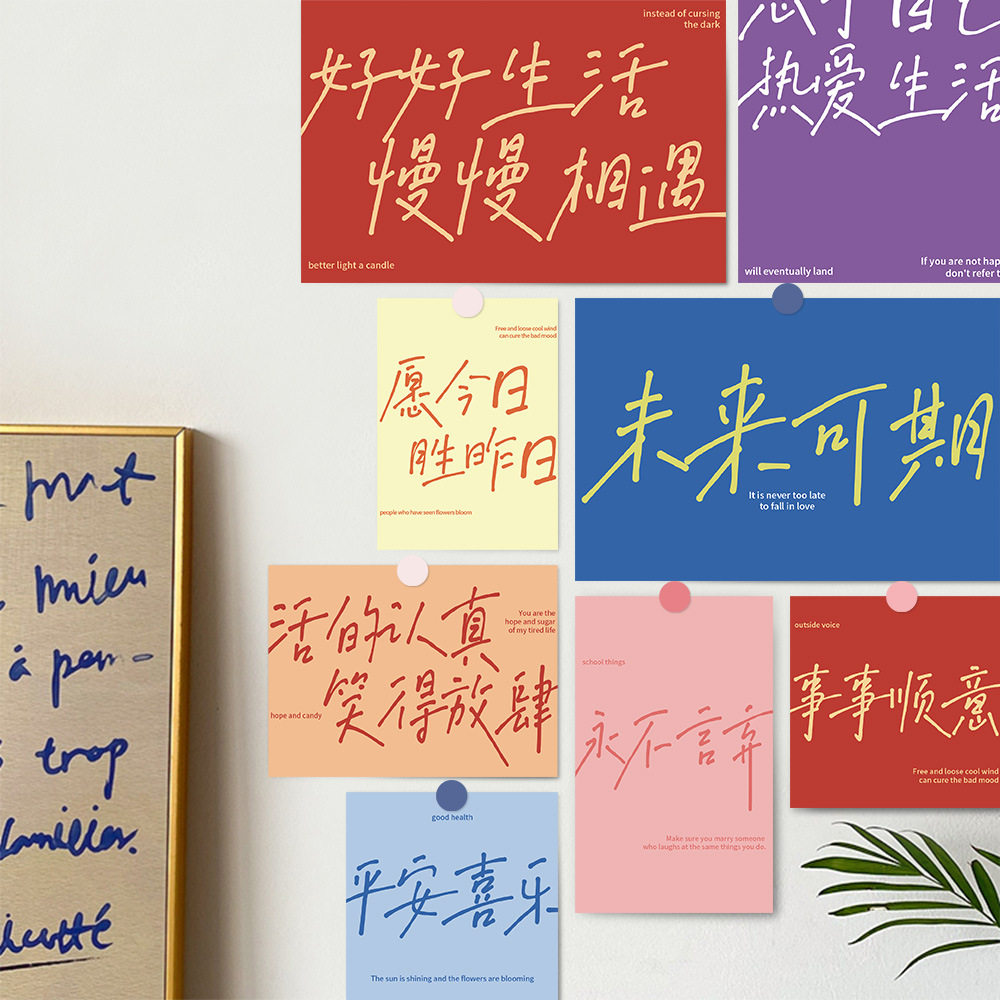 instead of cursing
the dark
好好生活
慢慢相遇
better light a candle
热爱生活
will eventually land
If you are not hap
don't refer t
Free and loose cool wind
can cure the bad mood
愿今日
胜昨日
people who have seen flowers bloom
未来可期
It is never too late
to fall in love
活的认真
笑得放肆
You are the
hope and sugar
of my tired life
hope and candy
school things
永不言弃
Make sure you marry someone
who laughs at the same things you do.
outside voice
事事顺意
Free and loose cool wind
can cure the bad mood
good health
平安喜乐
The sun is shining and the flowers are blooming
mieu
à
trop